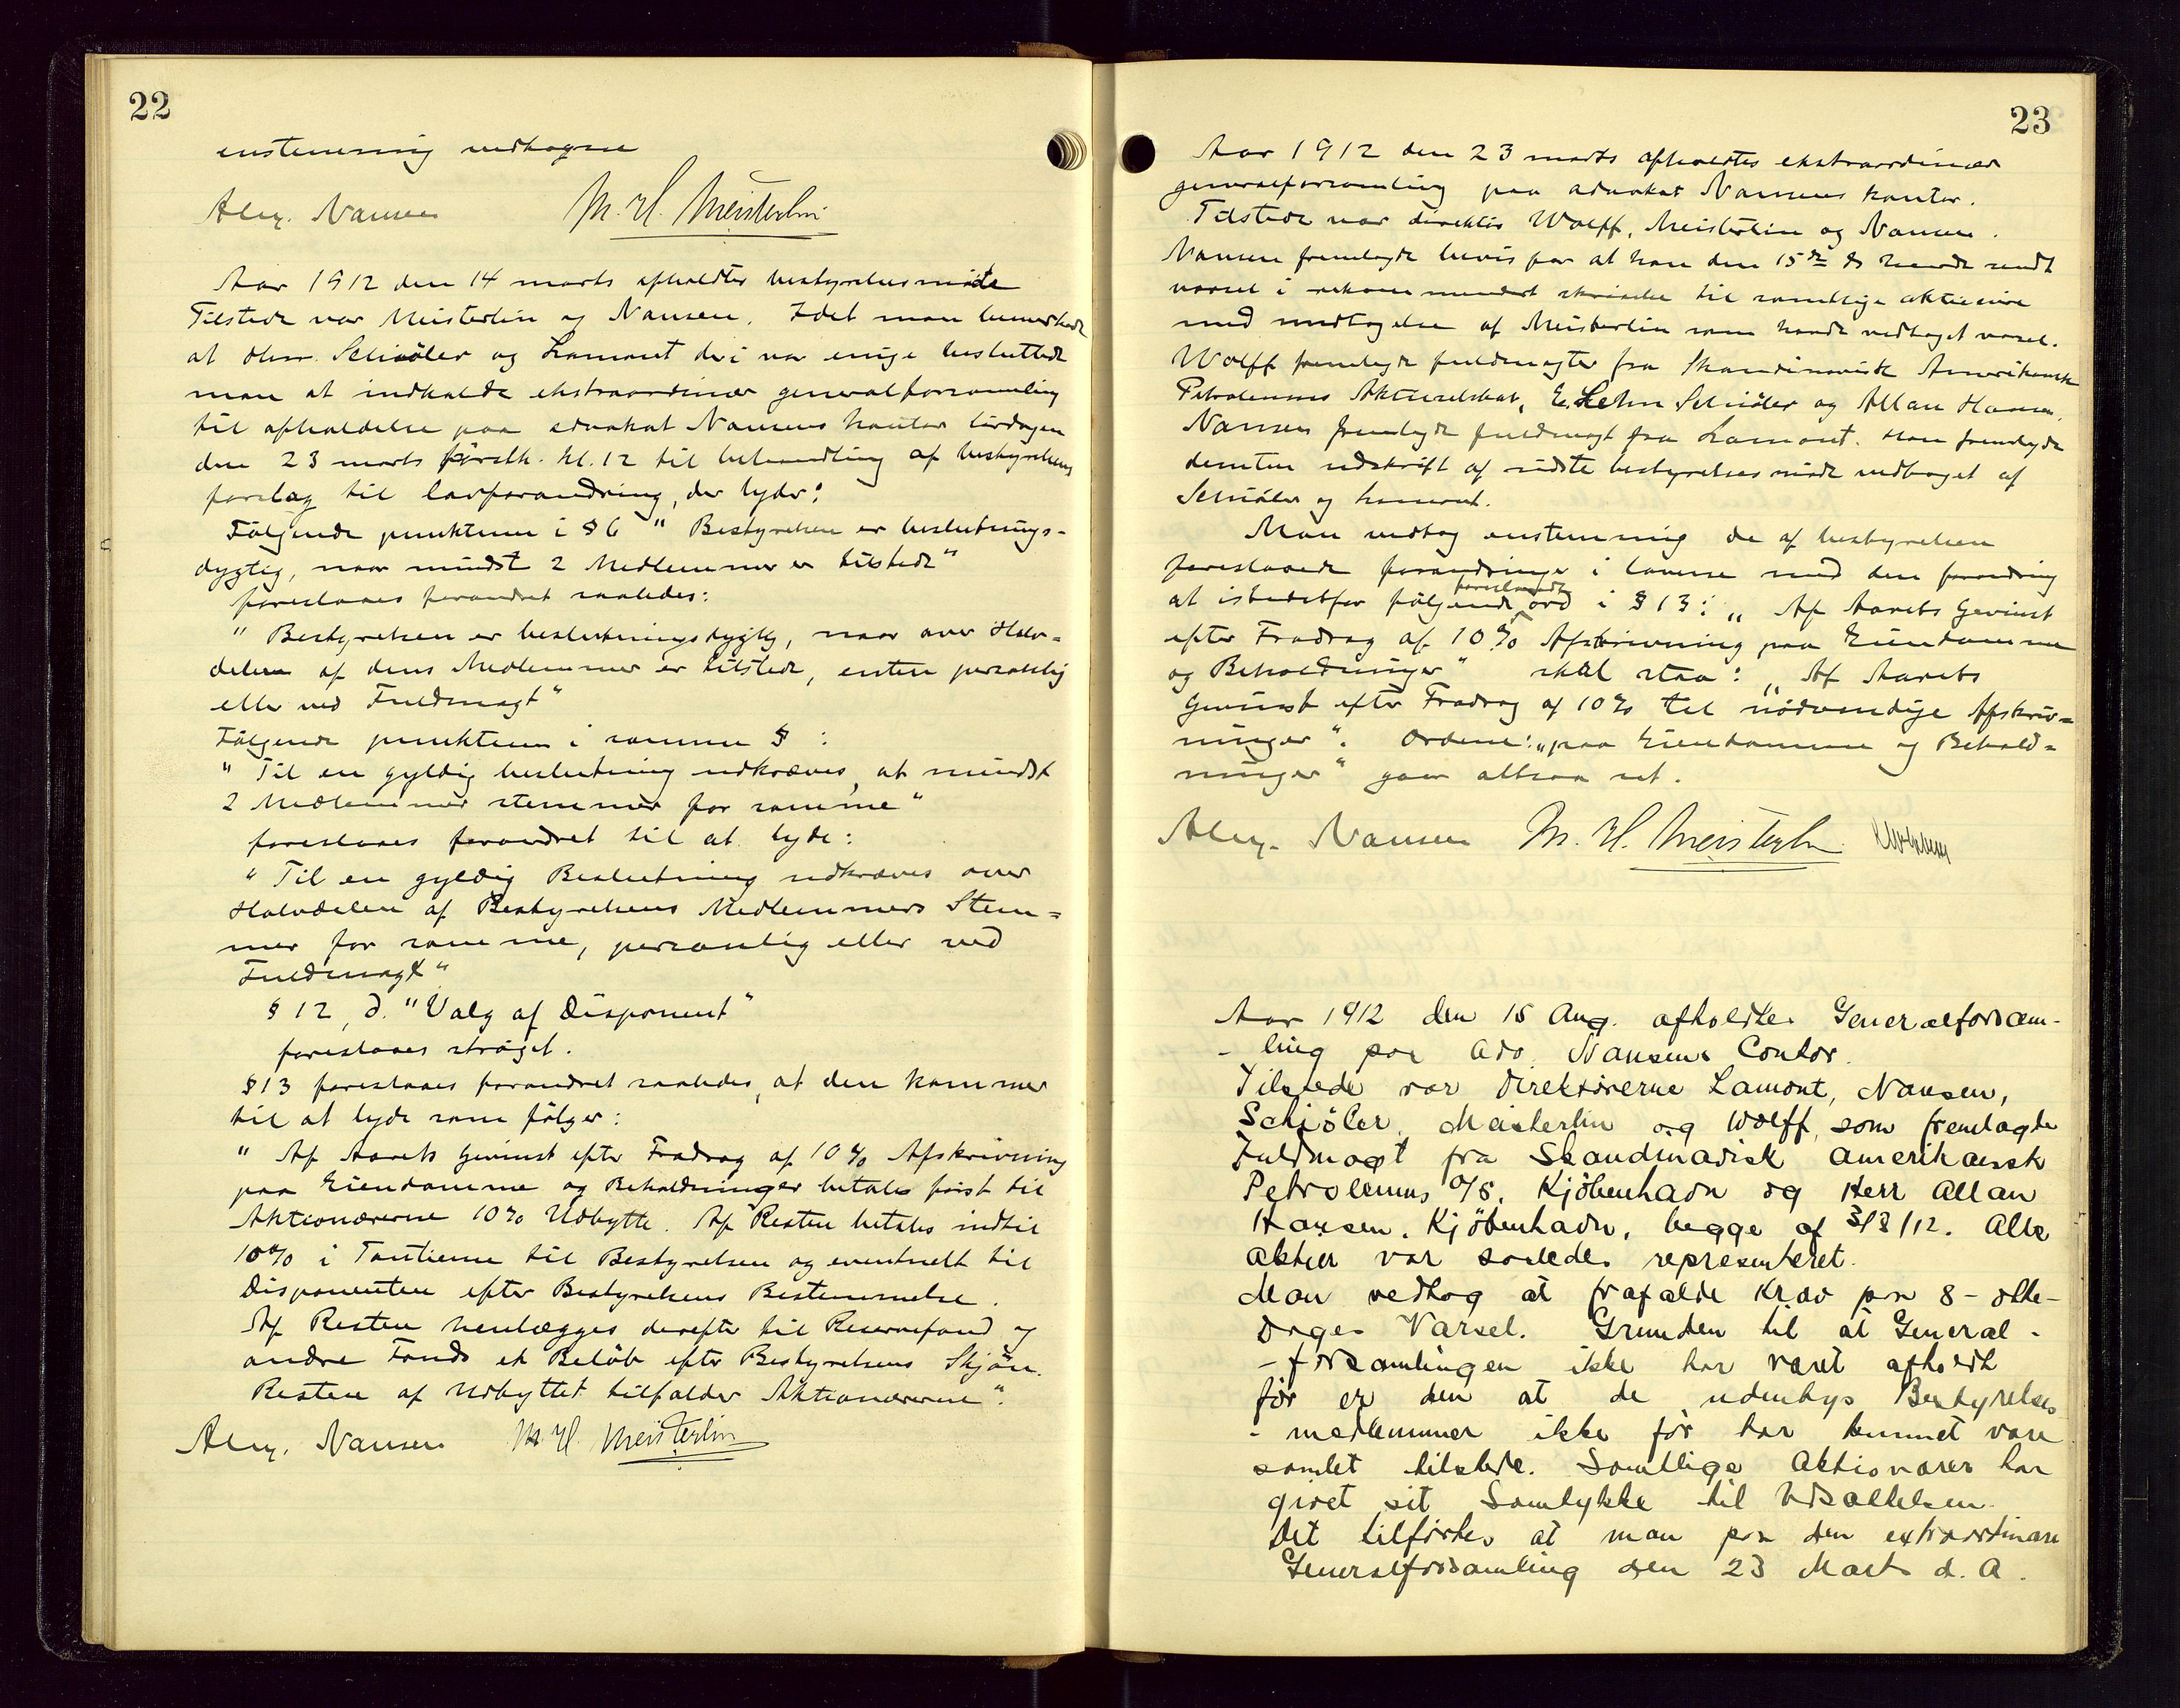 22
enstemmig vedtagne
Alex. Nansen M. H. Meisterlin
Aar 1912 den 14 marts afholdtes bestyrelsesmöte
Tilstede var Meisterlin og Nansen. Idet man bemerkede
at Herr Schiöler og Lamont heri var enige besluttede
man at indkalde ekstraordinær generalforsamling
til afholdelse paa advokat Nansens kontor lördagen
den 23 marts förstk. kl. 12 til behandling af bestyrelsens
forslag til lovforandring, der lyder:
Fölgende punktum i § 6 " Bestyrelsen er beslutnings-
dygtig, naar mindst 2 Medlemmer er tilstede"
foreslaaes forandret saaledes:
" Bestyrelsen er beslutningsdygtig, naar over Halv=
delen af dens Medlemmer er tilstede, enten personlig
eller ved Fuldmagt"
Fölgende punktum i samme § :
" Til en gyldig beslutning udkræves, at mindst
2 Medlemmer stemmer for samme"
foreslaaes forandret til at lyde:
" Til en gyldig Beslutning udkræves over
Halvdelen af Bestyrelsens Medlemmers Stem=
mer for samme, personlig eller ved
Fuldmagt"
§ 12, d. "Valg af Disponent"
foreslaaes ströget.
§ 13 foreslaaes forandret saaledes, at den kommer
til at lyde som fölger:
" Af Aarets Gevinst efter Fradrag af 10% Afskrivning
paa Eiendomme og Beholdninger betales först til
Aktionærerne 10% Udbytte. Af Resten betales indtil
10% i Tantieme til Bestyrelsen og eventuelt til
Disponenten efter Bestyrelsens Bestemmelse.
Af Resten henlægges derefter til Reservefond og
andre Fonds et Belöb efter Bestyrelsens Skjön.
Resten af Udbyttet tilfalder Aktionærerne".
Alex. Nansen M. H. Meisterlin
23
Aar 1912 den 23 marts afholdtes ekstraordinær
generalforsamling paa advokat Nansens kontor.
Tilstede var direktör Wolff, Meisterlin og Nansen.
Nansen fremlagde bevis for at han den 15de ds havde sendt
varsel i rekommendert skrivelse til samtlige aktieeiere
med undtagelse af Meisterlin som havde vedtaget varsel.
Wolff fremlagde fuldmagter fra Skandinavisk Amerikansk
Petroleums Aktieselskab, E. Lehn Schiöler og Allan Hansen.
Nansen fremlagde fuldmagt fra Lamont. Han fremlagde
desuten udskrift af sidste bestyrelsesmöde vedtaget af
Schiöler og Lamont.
Man vedtog enstemmig de af bestyrelsen
foreslaaede forandringer i lovene med den forandring
at istedetfor fölgende foreslaaede ord i § 13: „ Af Aarets Gevinst
efter Fradrag af 10% Afskrivning paa Eiendomme
og Beholdninger" skal staa: „ Af Aarets
Gevinst efter Fradrag af 10% til nödvendige Afskriv=
ninger". Ordene: „paa Eiendomme og Behold=
ninger" gaar altsaa ut.
Alex. Nansen M. H. Meisterlin
Aar 1912 den 15 Aug. afholdtes Generalforsam-
- ling paa Adv. Nansens Contor.
Tilstede var Direktörerne Lamont, Nansen,
Schiöler, Meisterlin og Wolff, som fremlagde
Fuldmagt fra Skandinavisk Amerikansk
Petroleums A/S, Kjöbenhavn og Herr Allan
Hansen, Kjöbenhavn, begge af 3/8/12. Alle
Aktier var saaledes representeret.
Man vedtog at frafalde Krav paa 8 - otte -
Dages Varsel. Grunden til at General -
- forsamlingen ikke har været afholdt
för er den at de udenbys Bestyrelses
- medlemmer ikke för har kunnet være
samlet tilstede. Samtlige Aktionærer har
givet sit Samtykke til Udsættelsen.
Det tilförtes at man paa den extraordinære
Generalforsamling den 23 Marts d. A.